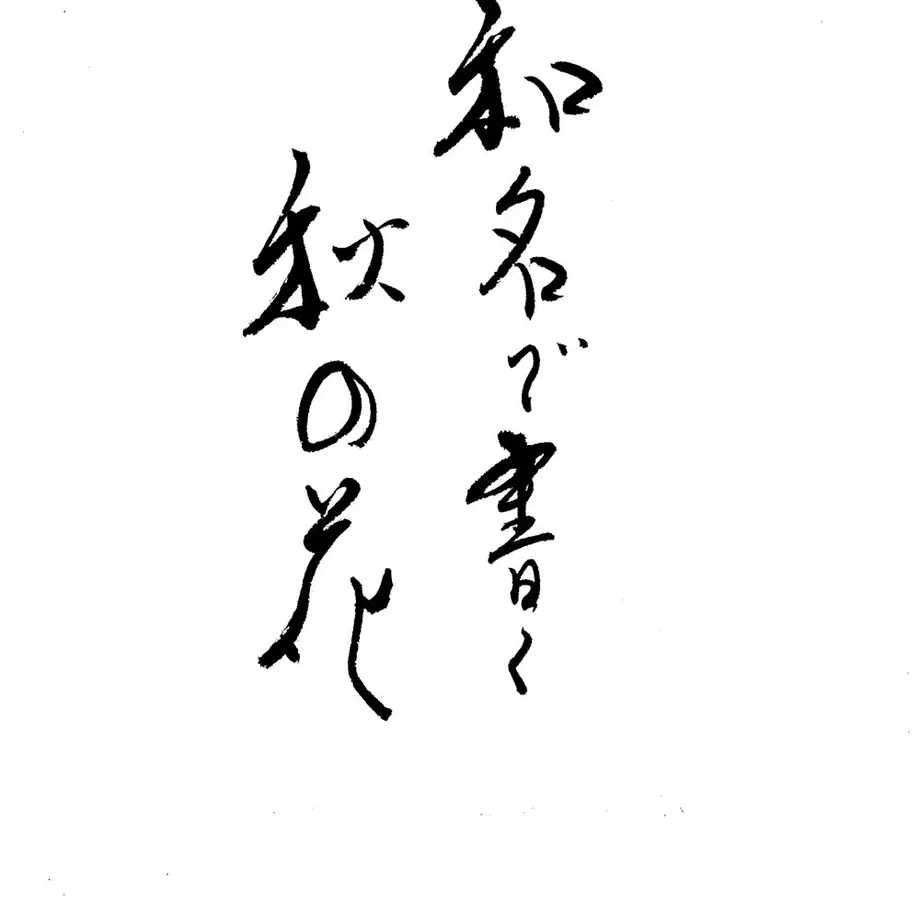 和名で書く
秋の花